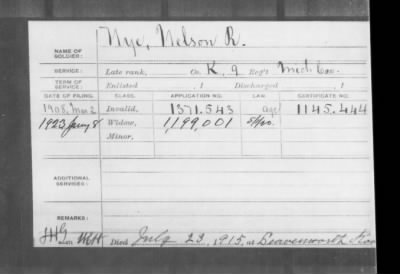 NAME OF SOLDIER: Nye, Nelson R.
SERVICE: Late rank, Co. K, 9 Reg't Mich Cav.
TERM OF SERVICE: Enlisted , 1 Discharged , 1
DATE OF FILING. CLASS. APPLICATION NO. LAW. CERTIFICATE NO.
1908, Mar 2 Invalid, 1371.543 Age 1145.444
1923 Jany 8 Widow, 1,199,001
Minor,
ADDITIONAL SERVICES:
REMARKS:
Died July 23, 1915, at Leavenworth